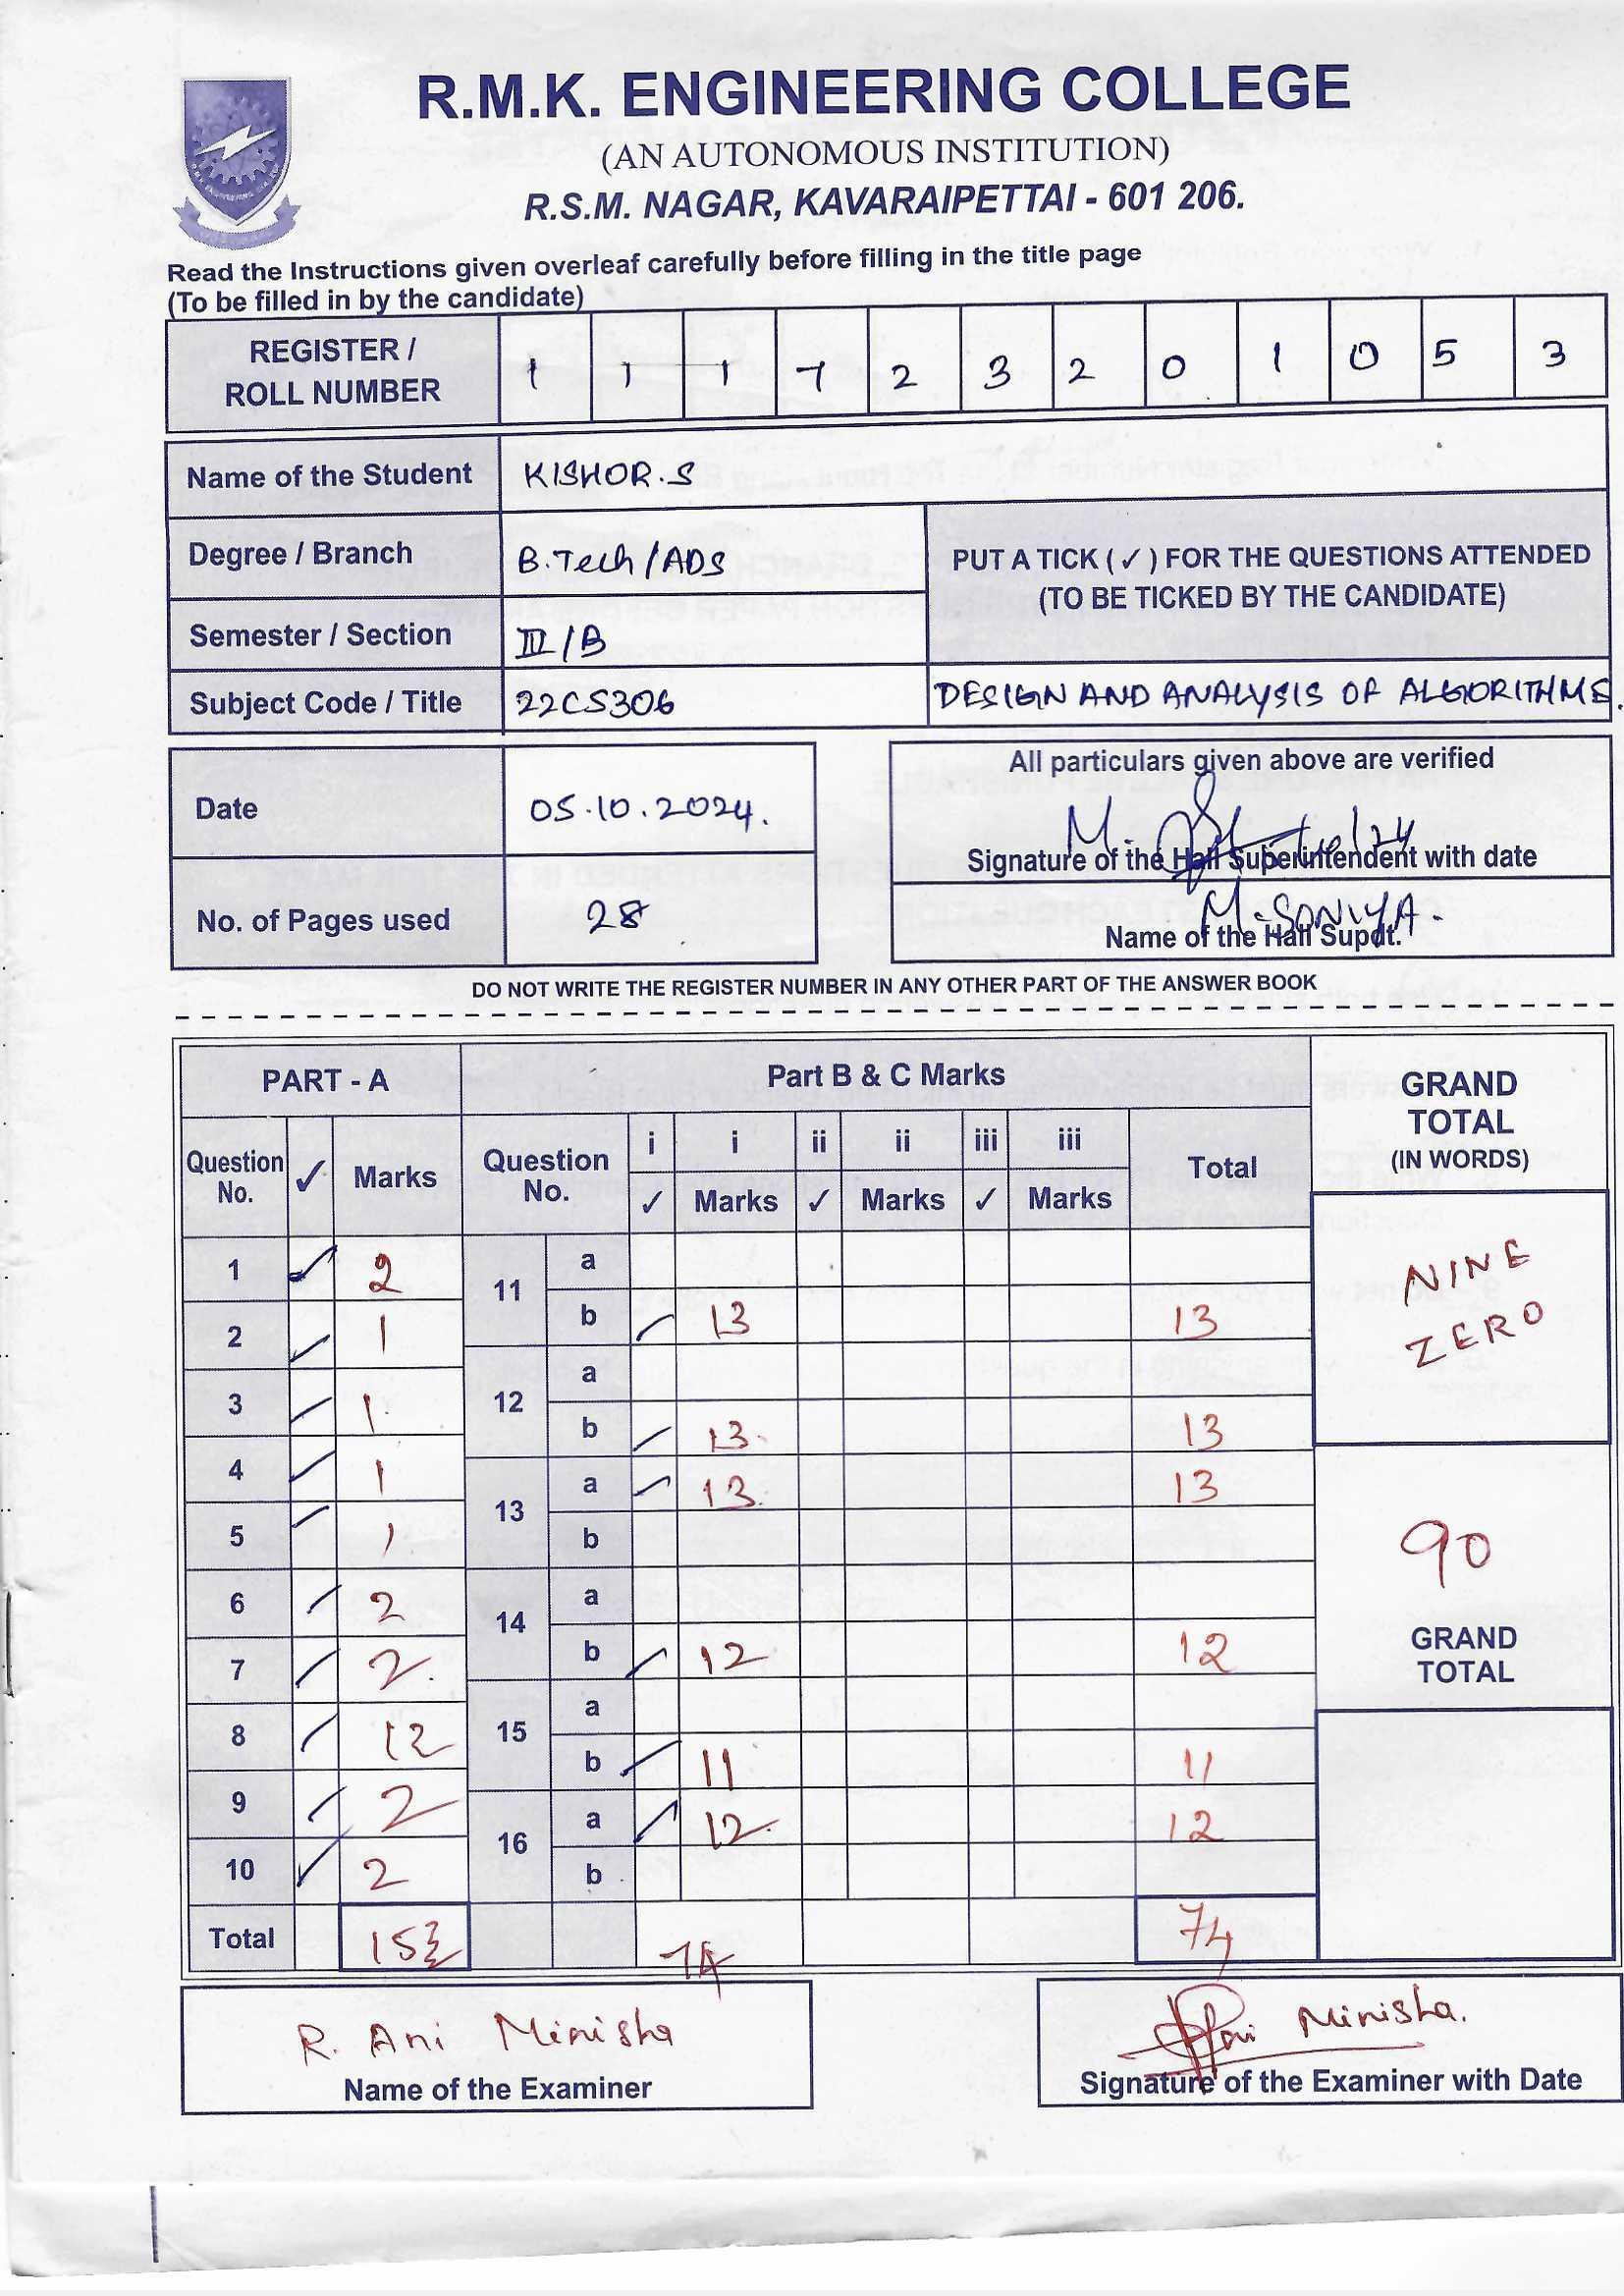 R.M.K. ENGINEERING COLLEGE
(AN AUTONOMOUS INSTITUTION)
R.S.M. NAGAR, KAVARAIPETTAI - 601 206.
Read the Instructions given overleaf carefully before filling in the title page
(To be filled in by the candidate)
REGISTER / ROLL NUMBER 1 1 1 7 2 3 2 0 1 0 5 3
Name of the Student KISHOR.S
Degree / Branch B.Tech/ADS
PUT A TICK (✓) FOR THE QUESTIONS ATTENDED
(TO BE TICKED BY THE CANDIDATE)
Semester / Section III/B
Subject Code / Title 22CS306 DESIGN AND ANALYSIS OF ALGORITHMS.
Date 05.10.2024.
All particulars given above are verified
Signature of the Hall Superintendent with date
No. of Pages used 28
M.SONIYA.
Name of the Hall Supdt.
DO NOT WRITE THE REGISTER NUMBER IN ANY OTHER PART OF THE ANSWER BOOK
PART - A Part B & C Marks GRAND TOTAL (IN WORDS)
Question No. ✓ Marks Question No. i ✓ i Marks ii ✓ ii Marks iii ✓ iii Marks Total
1 ✓ 2 11 a
b ✓ 13 13
NINE
ZERO
2 ✓ 1
3 ✓ 1 12 a
b ✓ 13 13
4 ✓ 1 13 a ✓ 13 13
5 ✓ 1 b
90
GRAND TOTAL
6 ✓ 2 14 a
7 ✓ 2 b ✓ 12 12
8 ✓ 15 a
b ✓ 11 11
9 ✓ 2 16 a ✓ 12 12
10 ✓ 2 b
Total 74 74
R. Ani Minisha
Name of the Examiner
Minisha.
Signature of the Examiner with Date